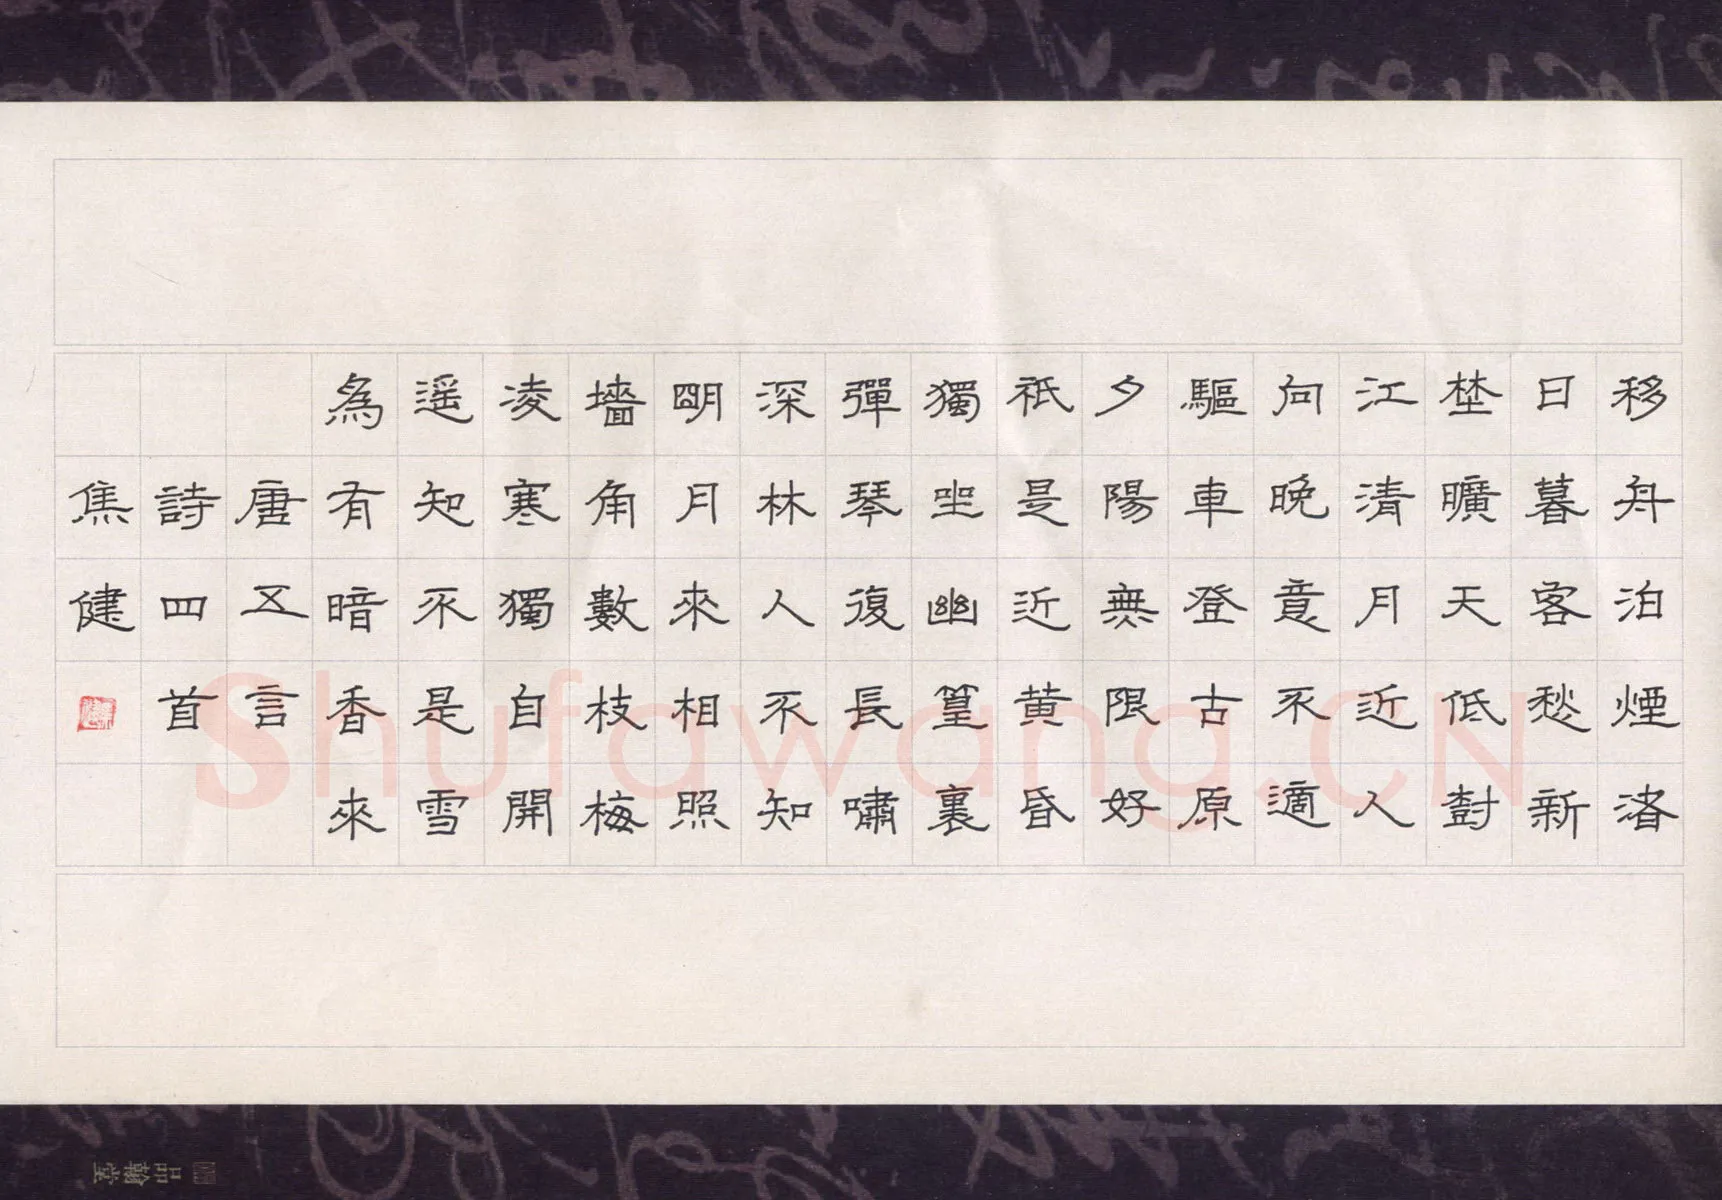 移舟泊煙渚
日暮客愁新
埜曠天低尌
江清月近人
向晚意不適
驅車登古原
夕陽無限好
祇是近黄昏
獨坐幽篁裏
彈琴復長嘯
深林人不知
明月來相照
墻角數枝梅
凌寒獨自開
遥知不是雪
為有暗香來
唐五言
詩四首
焦健
Shufawang.CN
品翰堂